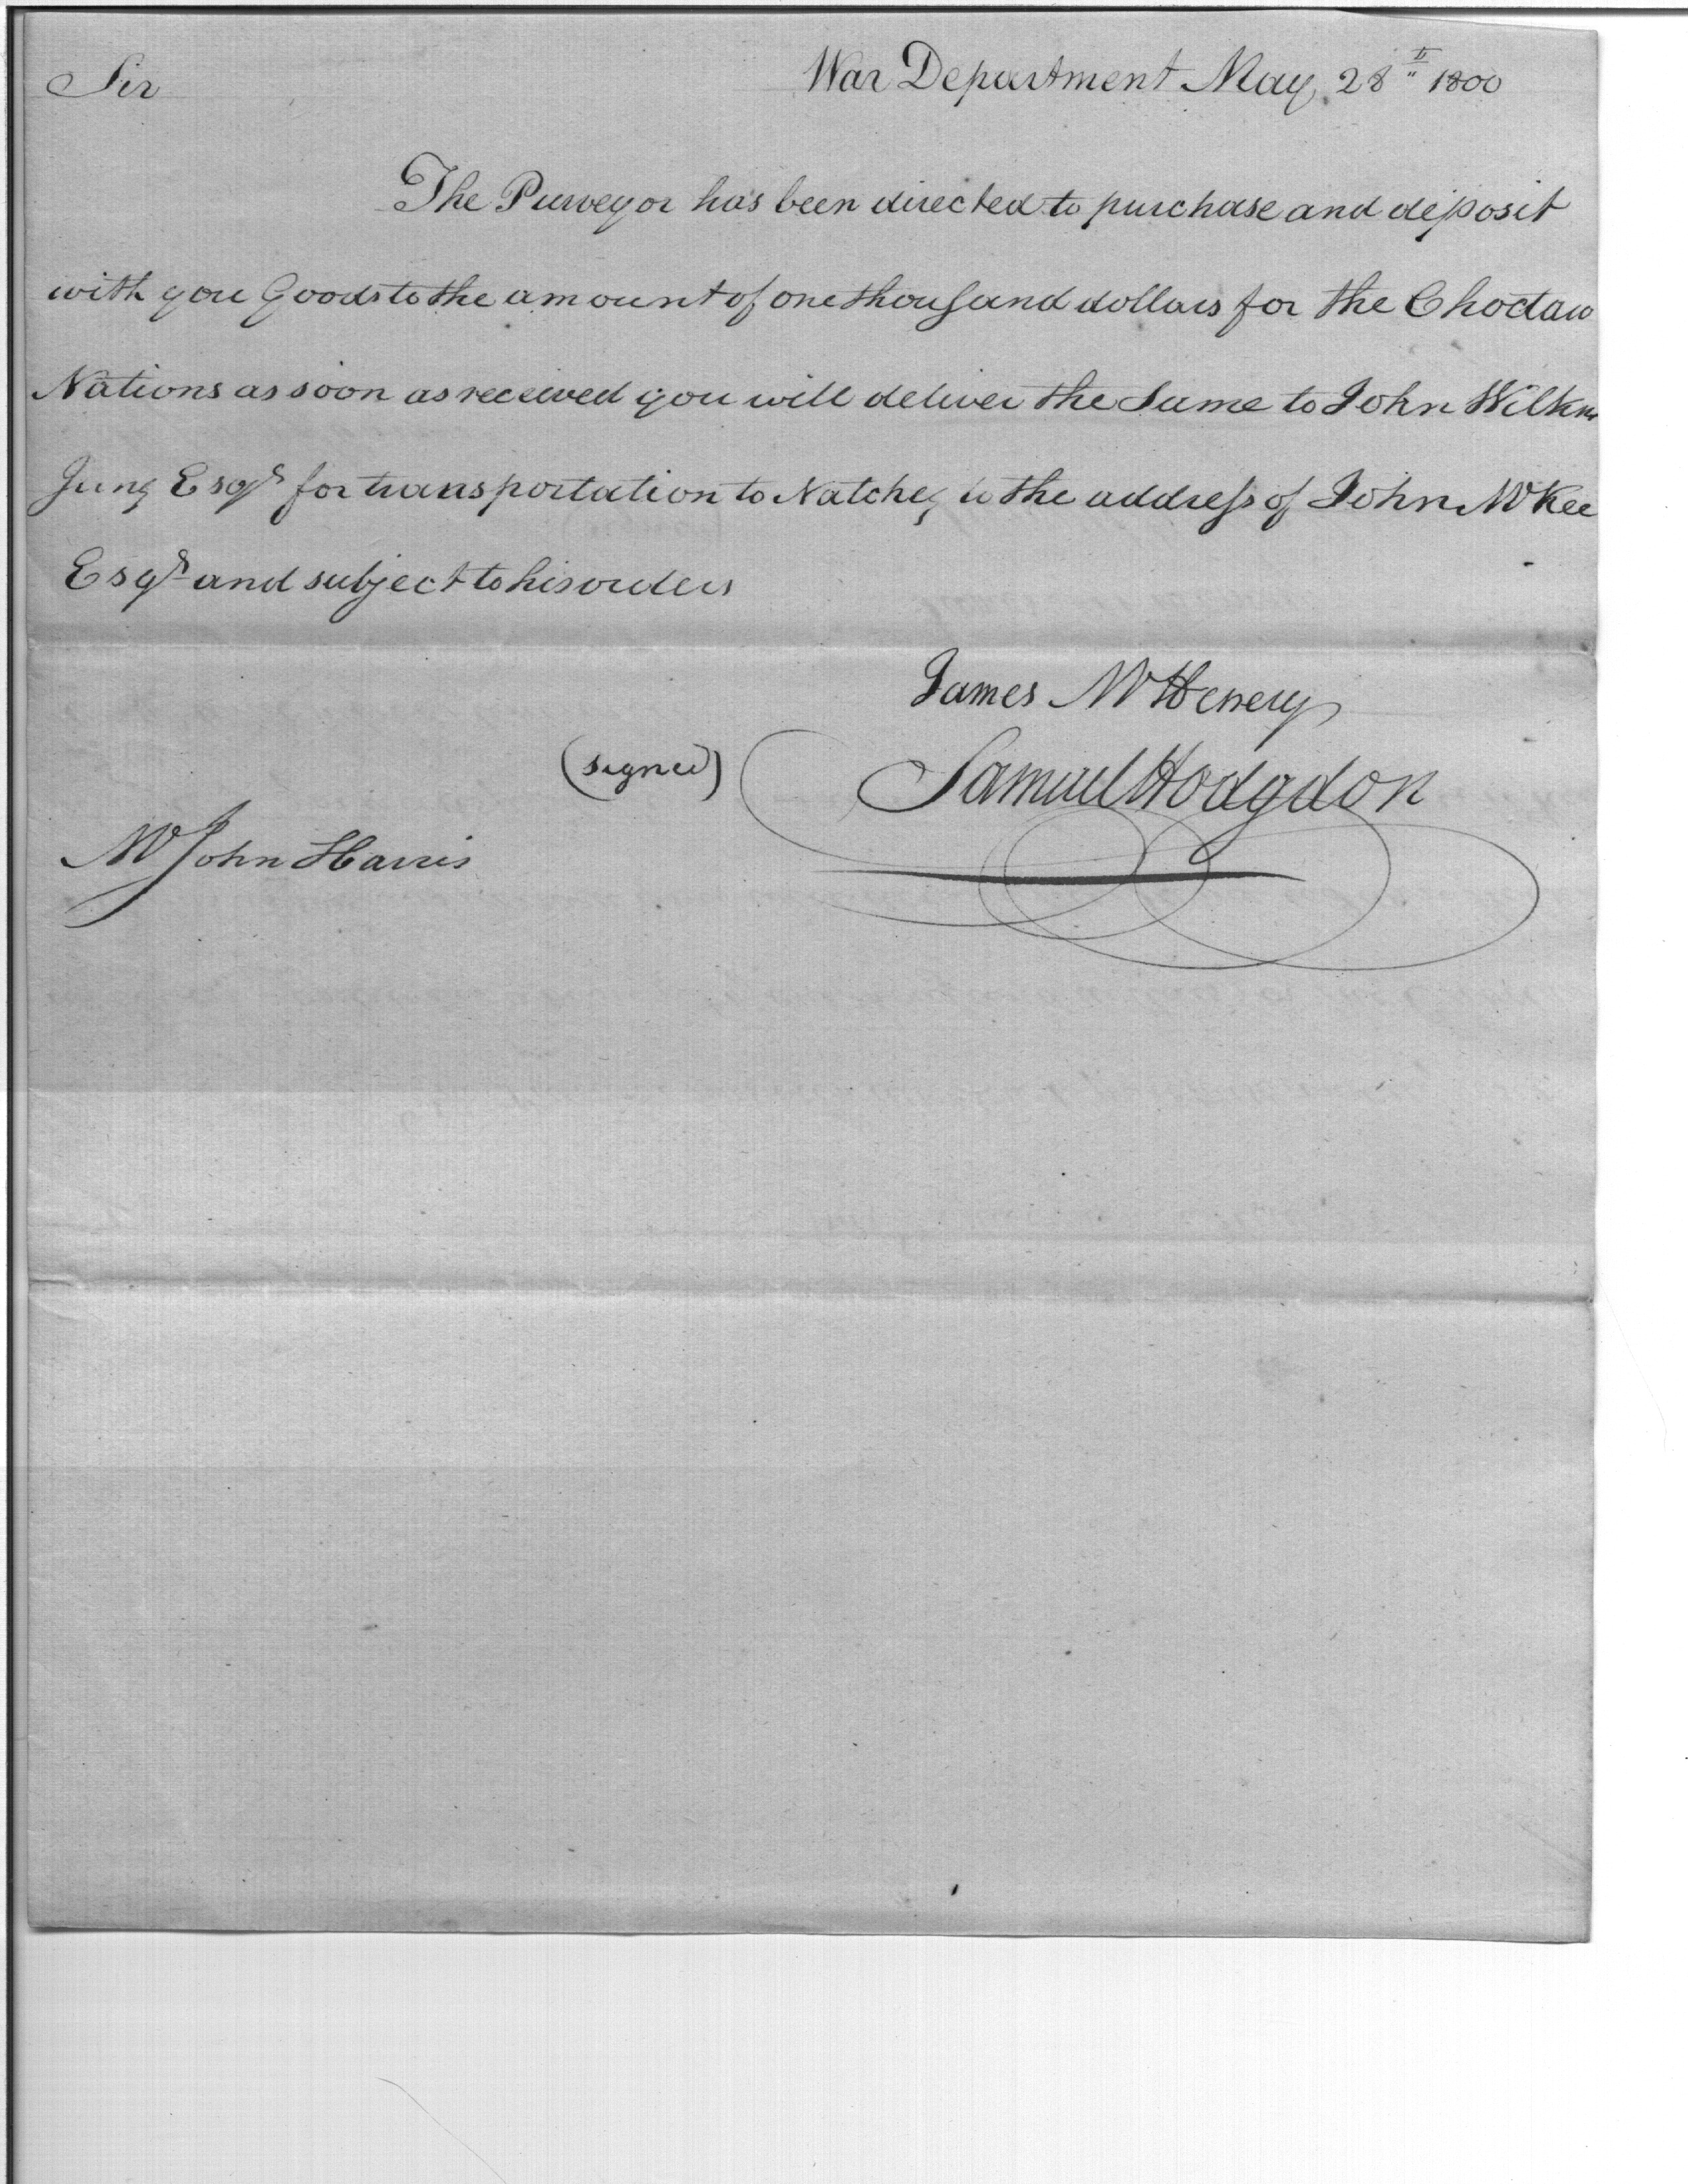 Sir
War Department May 28th 1800
The Purveyor has been directed to purchase and deposit
with you Goods to the amount of one thousand dollars for the Choctaw
Nations as soon as received you will deliver the Same to John Wilkins
Jung Esqr for transportation to Natchez to the address of John McKee
Esqr and subject to his orders
James McHenery
(signed) Samuel Hodgdon
Mr John Harris